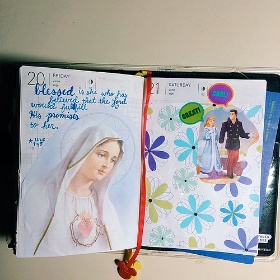 20 FRIDAY
blessed is she who has
believed that the Lord
would fulfill
His promises
to her.
* LUKE
1:45
21 SATURDAY
COOL!
GREAT!